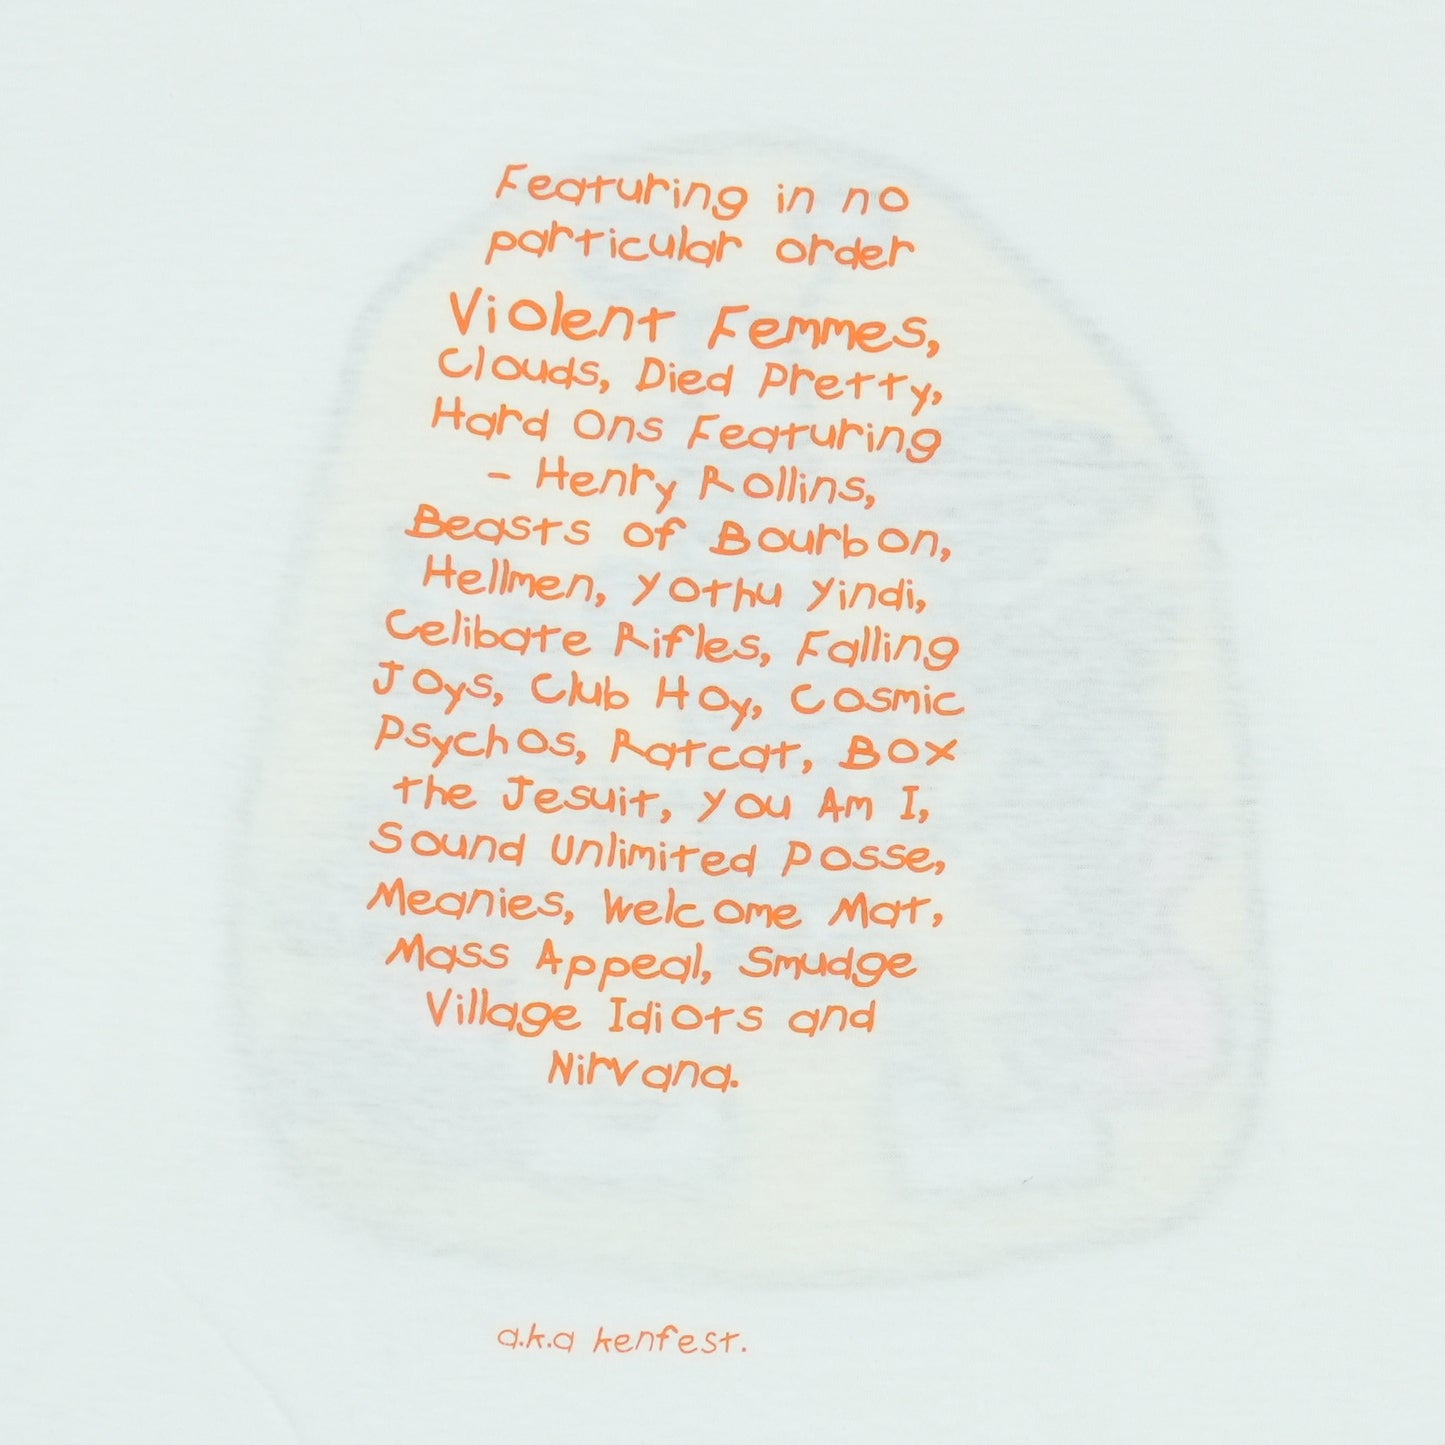 Featuring in no
particular order
Violent Femmes,
Clouds, Died Pretty,
Hard Ons Featuring
- Henry Rollins,
Beasts of Bourbon,
Hellmen, Yothu Yindi,
Celibate Rifles, Falling
Joys, Club Hoy, Cosmic
Psychos, Ratcat, Box
the Jesuit, You Am I,
Sound Unlimited Posse,
Meanies, Welcome Mat,
Mass Appeal, Smudge
Village Idiots and
Nirvana.
a.k.a kenfest.